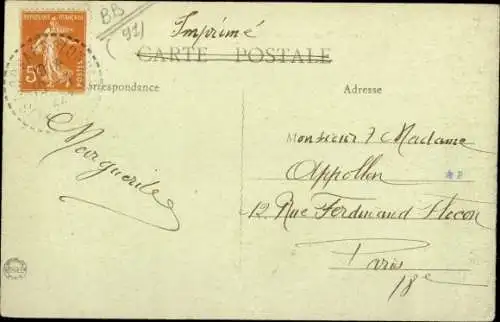 BB
(91)
Imprimé
REPUBLIQUE FRANÇAISE
5
POSTES
CARTE POSTALE
Correspondance
Adresse
Marguerite
Monsieur & Madame
Appollon
12 Rue Ferdinand Flocon
Paris
18e